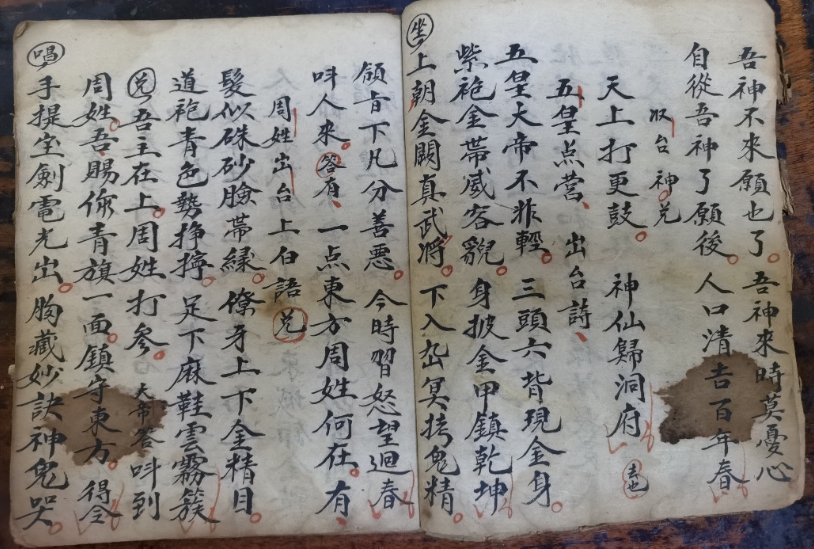 吾神不來願也了。吾神來時莫憂心
自從吾神了願後。人口清吉百年春
収台神兑
天上打更鼓。神仙歸洞府 去也
五皇点营、出台詩、
五皇大帝不非輕。三頭六背現金身。
紫袍金帶威容貌。身披金甲鎮乾坤
坐上朝金闕真武將。下入冥拷鬼精。
領旨下凡分善惡。今時習怒望迴春
呌人來。答有、一点東方周姓何在。有、
周姓出台上白語 兑
髮似硃砂臉帶緑。僚牙上下金精目。
道袍青色勢挣擰。足下麻鞋雲霧簇
兑 吾主在上。周姓打参。大帝答呌到
周姓。吾賜你青旗一面。鎮守東方。得令
唱 手提宝劍電光出。胸藏妙訣神鬼哭。